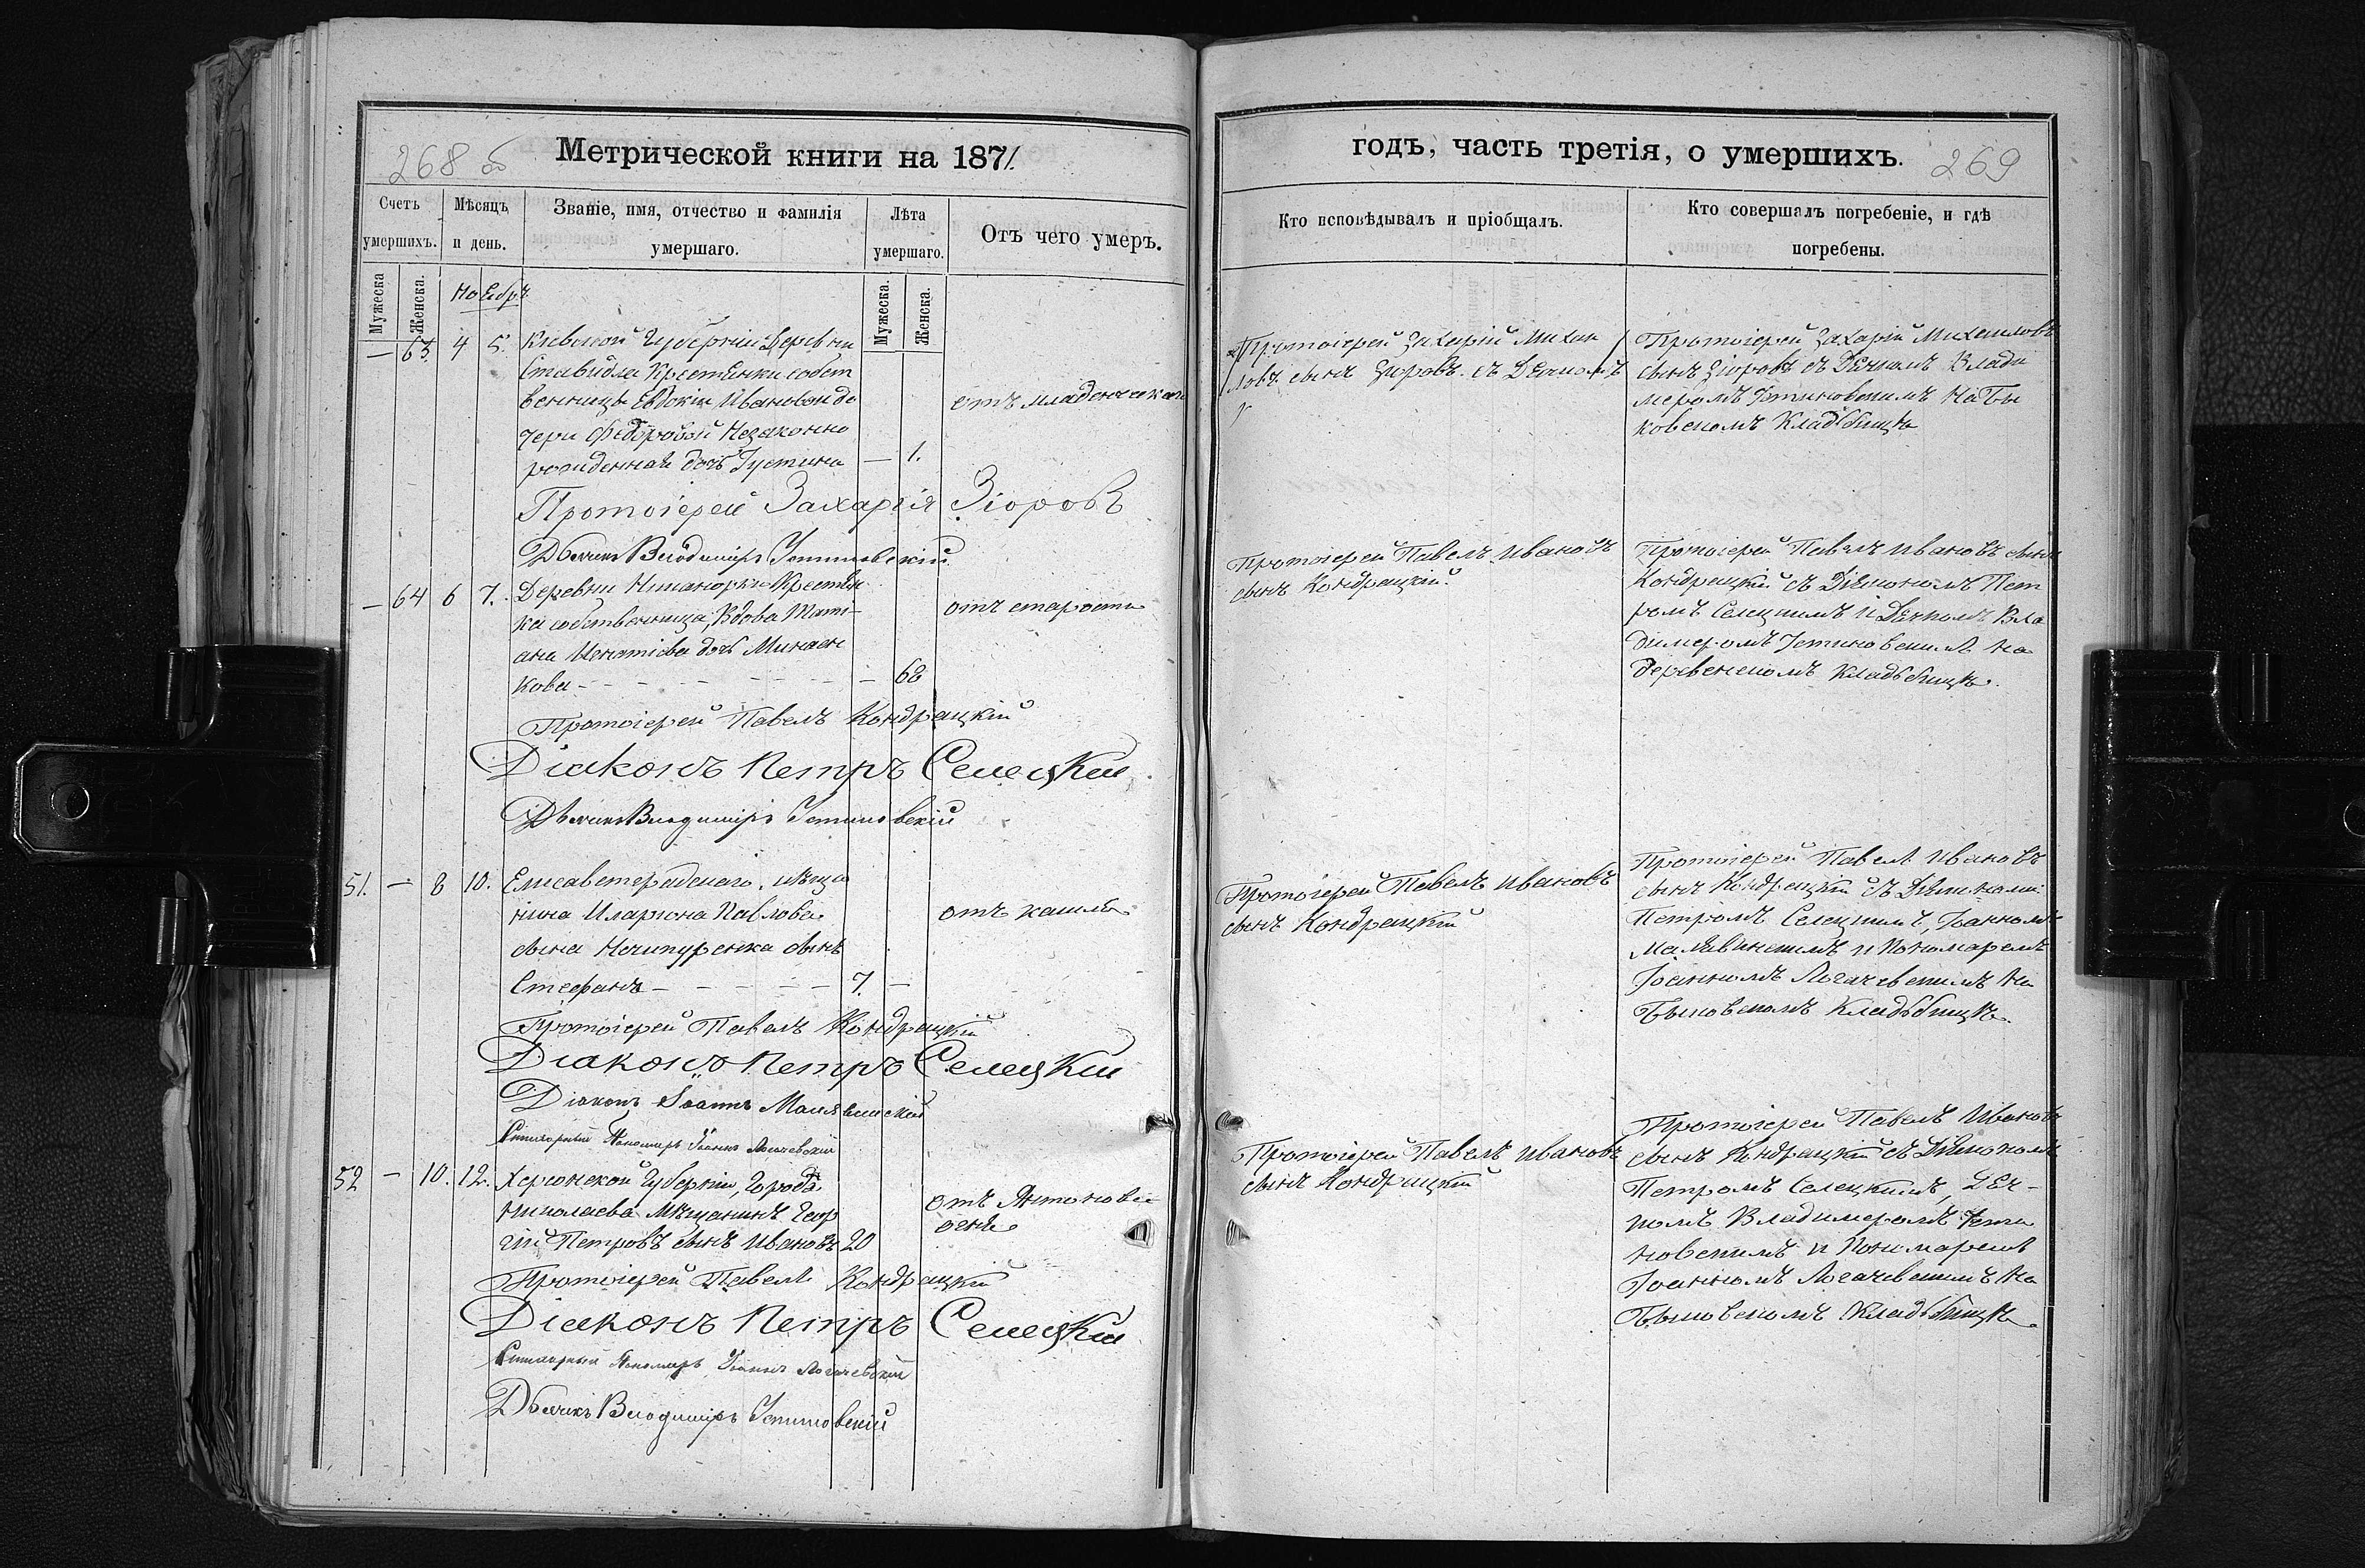 268 об
Метрической книги на 1871.
Счетъ умершихъ.
Мѣсяцъ и день.
Званіе, имя, отчество и фамилія умершаго.
Лѣта умершаго.
Отъ чего умеръ.
Мужеска
Женска.
Ноябрь
Мужеска.
Женска.
— 63. 4 5. Кіевской Губерніи Деревни
Ставидла Крестьянки собст
венницы Евдокіи Ивановой до
чери Федоровой Незаконно
рожденная дочь Іустина — 1.
отъ младенческаго
Протоіерей Захарія Зіоровъ
Дьячикъ Владиміръ Устиновскій
— 64 6 7. Деревни Никаноровки Крестьян
ка собственница, Вдова Тати-
ана Игнатіева дочь Минаен
кова - - - - - - - 68
отъ старости
Протоіерей Павелъ Кондрацкій
Діаконъ Петръ Селецкій
Дьячикъ Владиміръ Устиновскій
51. — 8 10. Елисаветградскаго мѣща
нина Иларіона Павлова
сына Нечипуренка сынъ
Стефанъ - - - - - 7. —
отъ кашля
Протоіерей Павелъ Кондрацкій
Діаконъ Петръ Селецкій
Діаконъ Іоаннъ Малявинскій
Пономарь Іоаннъ Логачевскій
52 — 10. 12. Херсонской Губерніи, Города
Николаева Мѣщанинъ Геор
гій Петровъ сынъ Ивановъ 20
отъ Антонова
огня
Протоіерей Павелъ Кондрацкій
Діаконъ Петръ Селецкій
Пономарь Іоаннъ Логачевскій
Дьячикъ Владиміръ Устиновскій
годъ, часть третія, о умершихъ.
269
Кто исповѣдывалъ и пріобщалъ.
Кто совершалъ погребеніе, и гдѣ погребены.
Протоіерей Захарій Михаи
ловъ сынъ Зіоровъ съ Дячкомъ
Протоіерей Захарій Михаиловъ
сынъ Зіоровъ съ Дячкомъ Влади
меромъ Устиновскимъ На Бы
ковскомъ Кладбищѣ
Протоіерей Павелъ Ивановъ
сынъ Кондрацкій.
Протоіерей Павелъ Ивановъ сынъ
Кондрацкій съ Діякономъ Пет
ромъ Селецкимъ и Дячкомъ Вла
димеромъ Устиновскимъ на
деревенскомъ Кладбищѣ.
Протоіерей Павелъ Ивановъ
сынъ Кондрацкій
Протоіерей Павелъ Ивановъ
сынъ Кондрацкій съ Діяконами:
Петромъ Селецкимъ, Іоанномъ
Малявинскимъ и Пономаремъ
Іоанномъ Логачевскимъ На
Быковскомъ Кладбищѣ.
Протоіерей Павелъ Ивановъ
сынъ Кондрацкій
Протоіерей Павелъ Ивановъ
сынъ Кондрацкій съ Діякономъ
Петромъ Селецкимъ, Дяч-
комъ Владимеромъ Усти
новскимъ и Пономаремъ
Іоанномъ Логачевскимъ На
Быковскомъ Кладбищѣ.